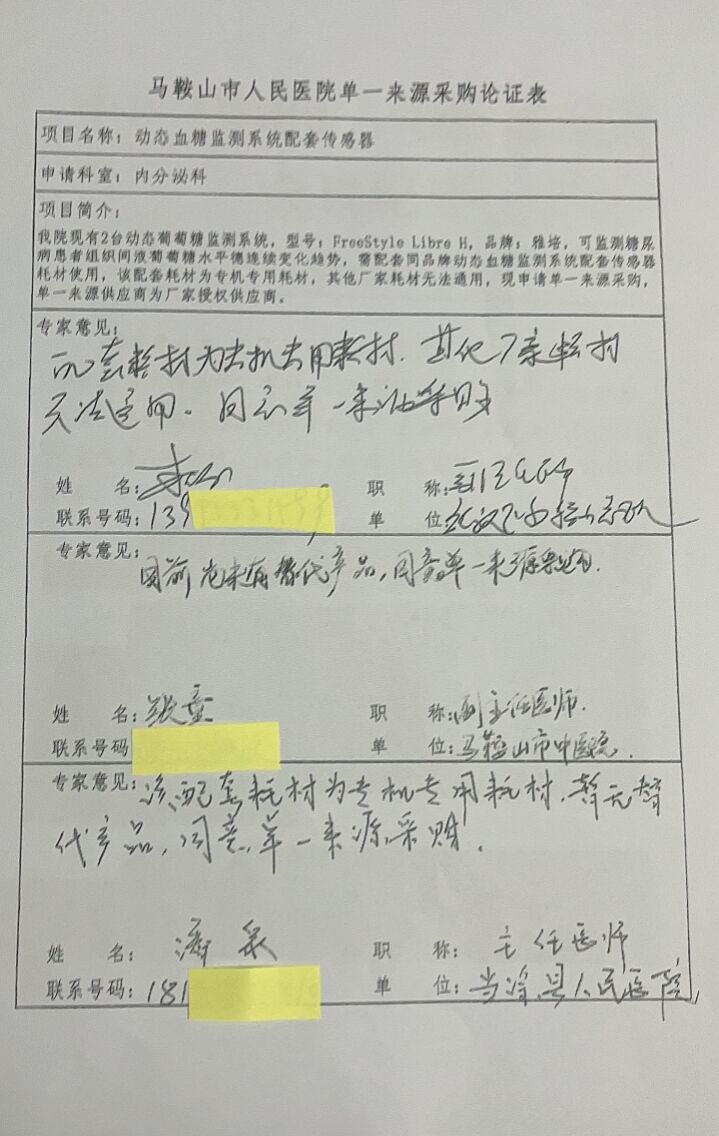 马鞍山市人民医院单一来源采购论证表
项目名称：动态血糖监测系统配套传感器
申请科室：内分泌科
项目简介：
我院现有2台动态葡萄糖监测系统，型号：FreeStyle Libre H，品牌：雅培，可监测糖尿
病患者组织间液葡萄糖水平德连续变化趋势，需配套同品牌动态血糖监测系统配套传感器
耗材使用，该配套耗材为专机专用耗材，其他厂家耗材无法通用，现申请单一来源采购，
单一来源供应商为厂家授权供应商。
专家意见：
配套耗材为专机专用耗材．其他厂家耗材
无法通用．同意单一来源采购
姓 名：
职 称：
联系号码：139
单 位：
专家意见：
目前尚未有替代产品，同意单一来源采购．
姓 名：张童
职 称：副主任医师．
联系号码
单 位：马鞍山市中医院．
专家意见：该配套耗材为专机专用耗材．暂无替
代产品，同意单一来源采购．
姓 名：
职 称：主任医师
联系号码：181
单 位：当涂县人民医院